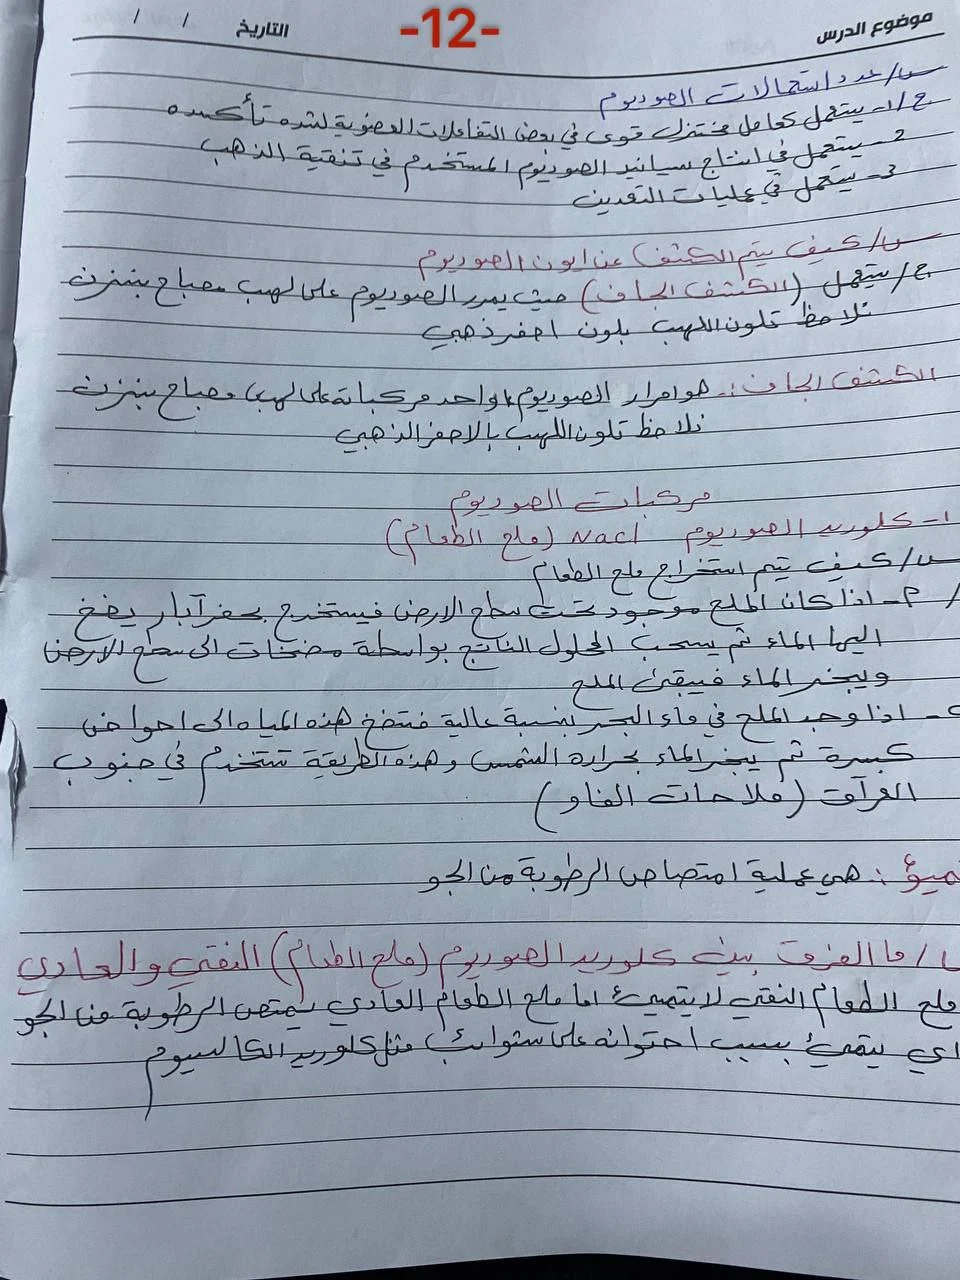 -12-
موضوع الدرس
التاريخ / /
س/ عدد استعمالات الصوديوم
ج/ 1- يستعمل كعامل مختزل قوي في بعض التفاعلات العضوية لشده تأكسده
2- يستعمل في انتاج سيانيد الصوديوم المستخدم في تنقية الذهب
3- يستعمل في عمليات التعدين
س/ كيف يتم الكشف عن ايون الصوديوم
ج/ يستعمل (الكشف الجاف) حيث يمرر الصوديوم على لهب مصباح بنزن
نلاحظ تلون اللهب بلون اصفر ذهبي
الكشف الجاف: هو امرار الصوديوم او احد مركباته على لهب مصباح بنزن
نلاحظ تلون اللهب بالاصفر الذهبي
مركبات الصوديوم
1- كلوريد الصوديوم Nacl (ملح الطعام)
س/ كيف يتم استخراج ملح الطعام
/ م- اذا كان الملح موجود تحت سطح الارض فيستخرج بحفر آبار يضخ
اليها الماء ثم يسحب المحلول الناتج بواسطة مضخات الى سطح الارض
ويبخر الماء فيبقى الملح
- اذا وجد الملح في ماء البحر بنسبة عالية فتضخ هذه المياه الى احواض
كبيرة ثم يبخر الماء بحرارة الشمس وهذه الطريقة تستخدم في جنوب
العراق (ملاحات الفاو)
تميؤ: هي عملية امتصاص الرطوبة من الجو
س/ ما الفرق بين كلوريد الصوديوم (ملح الطعام) النقي والعادي
ملح الطعام النقي لا يتميئ اما ملح الطعام العادي يمتص الرطوبة من الجو
اي يتميئ بسبب احتوائه على شوائب مثل كلوريد الكالسيوم